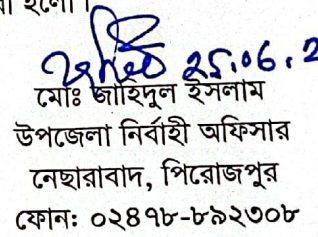 হলো।
25.06.2
মোঃ জাহিদুল ইসলাম
উপজেলা নির্বাহী অফিসার
নেছারাবাদ, পিরোজপুর
ফোন: ০২৪৭৮-৮৯২৩০৮